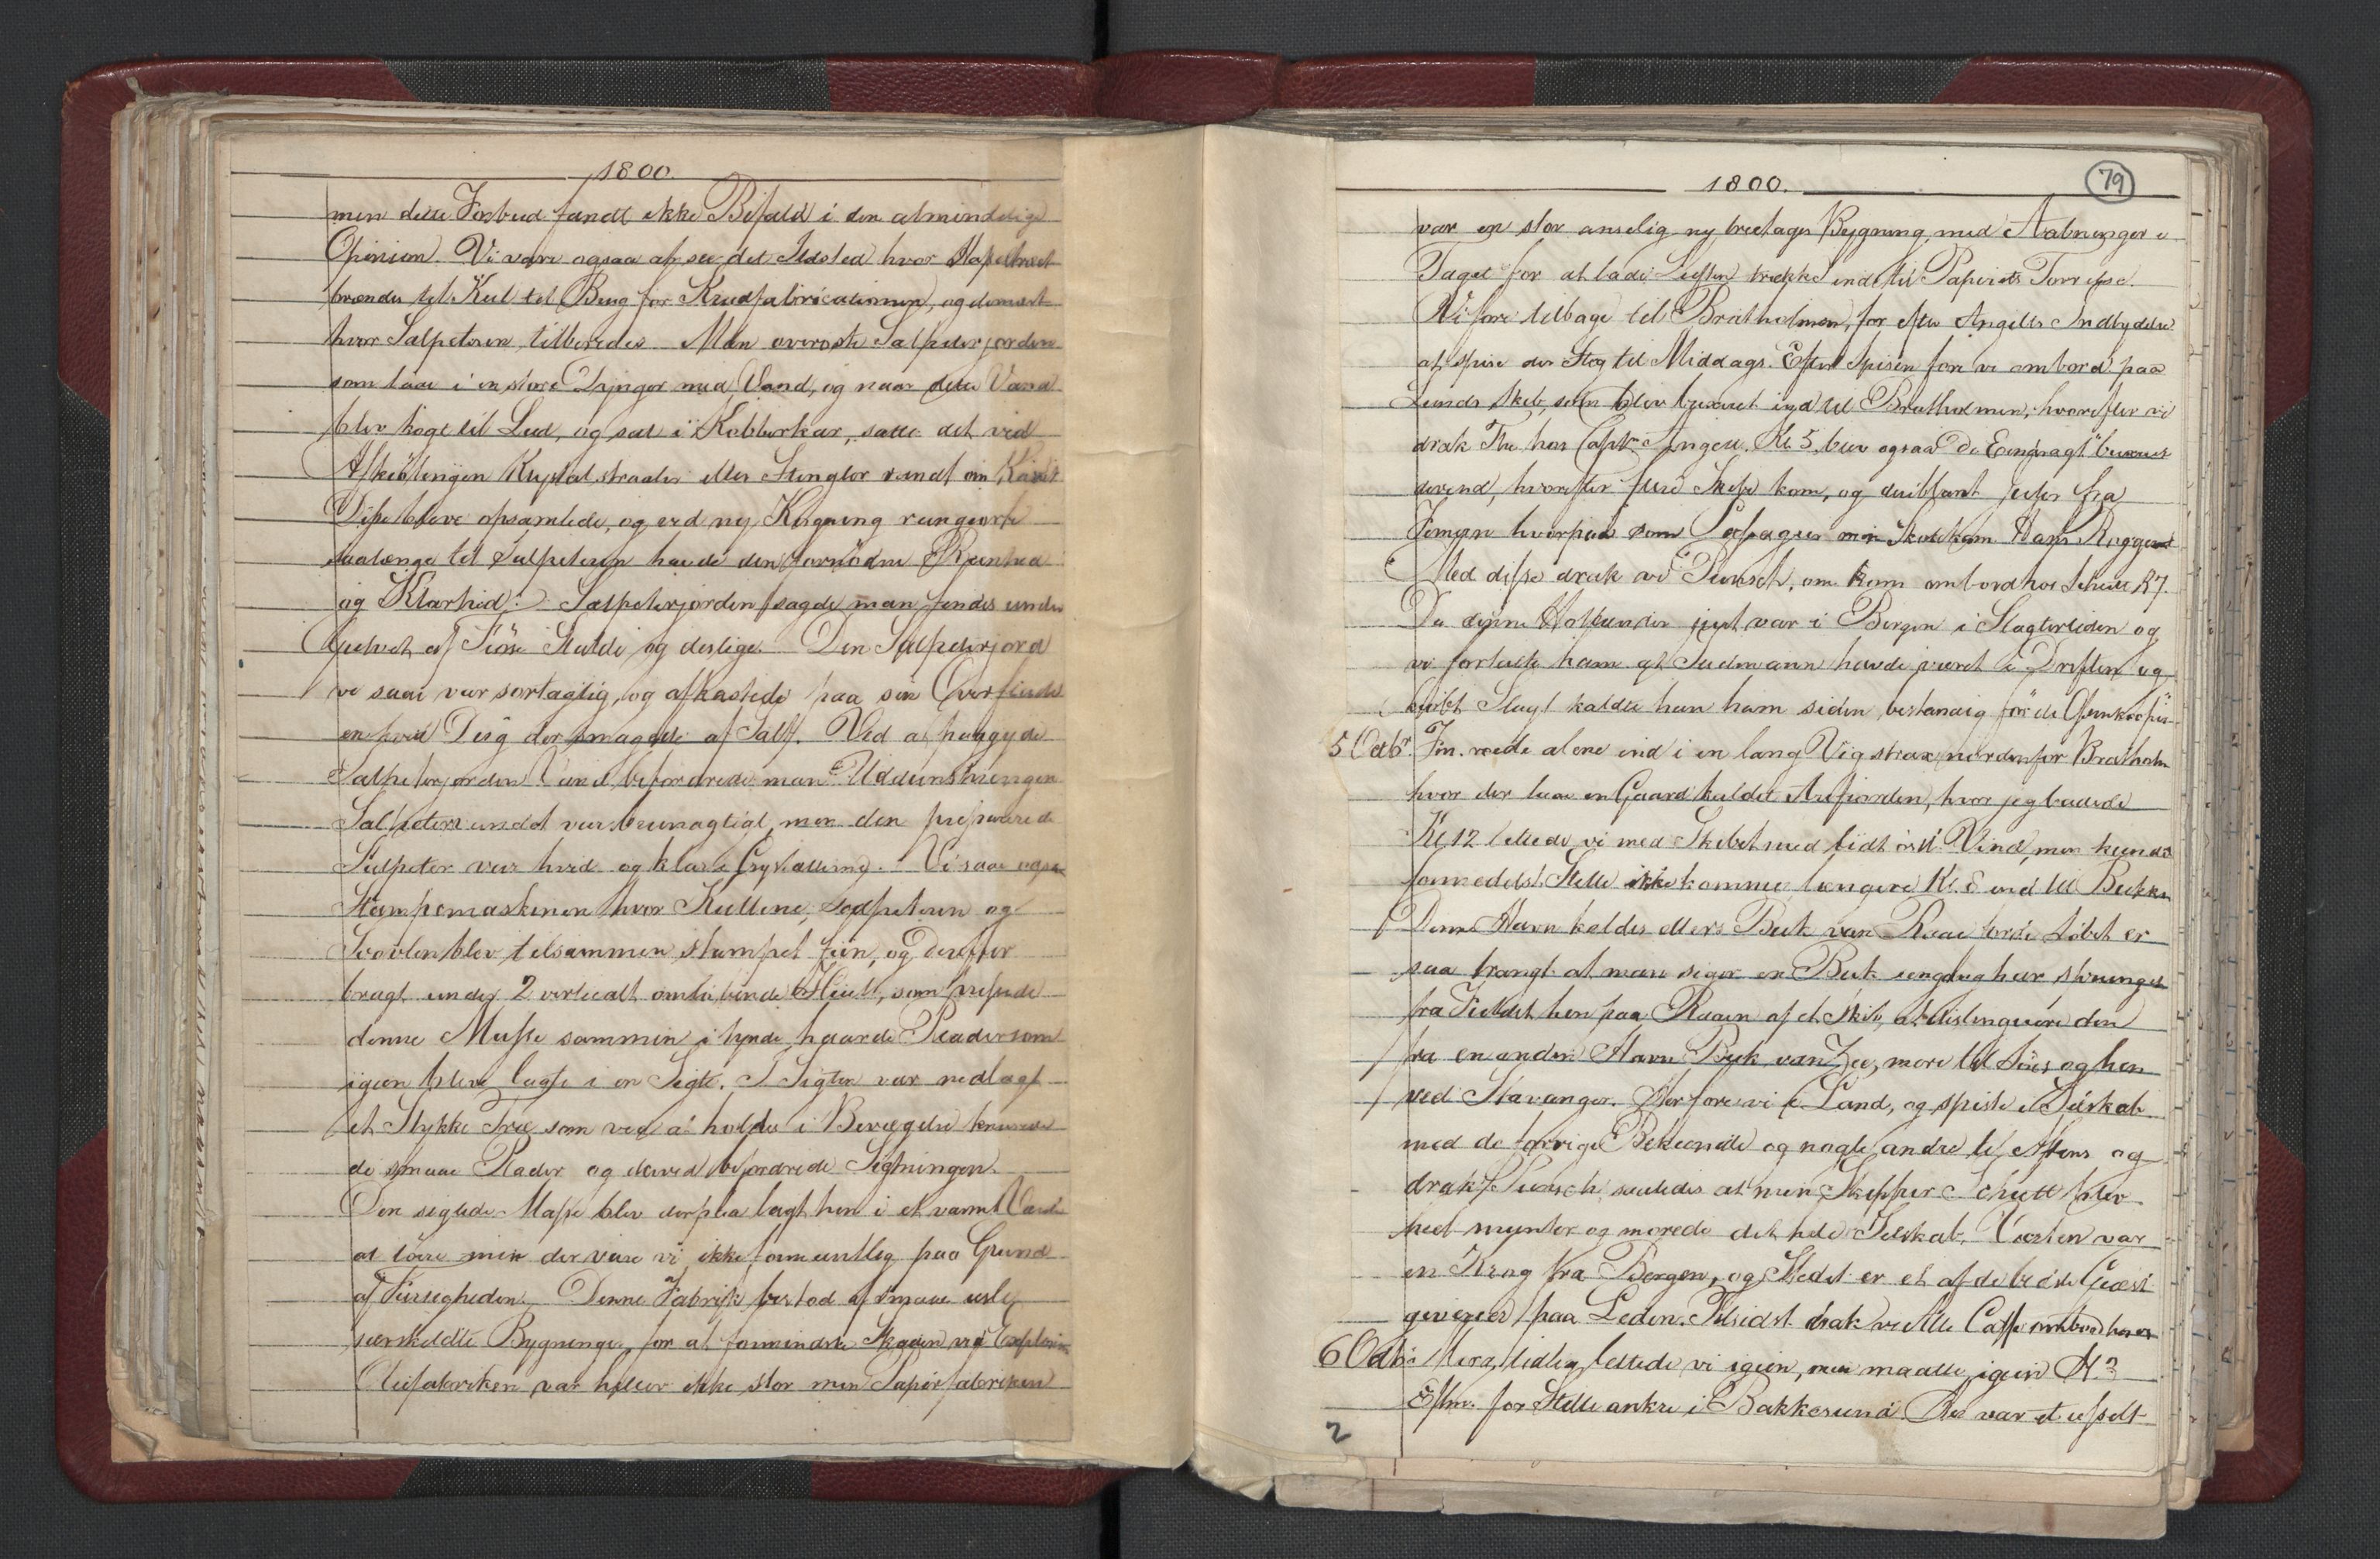 1800.
men dette Forbud fandt ikke Bifald i den almindelige
Opinion. Vi vare ogsaa at see det Ildsted hvor
brændes til Kul til Brug for Krudfabricationen, og dernæst
hvor Salpeteren tilberedes. Man overøste Salpeterjorden
som laae i en store Dynger med Vand, og naar dette Vand
blev kogt til Lud, og sat i Kobberkar, satte det ved
Afkiölingen Krystalstraaler eller Stengler rundt om Karret
Disse bleve opsamlede, og ved ny Kogning reengiorte
saalænge til Salpeteren havde den fornødne Reenhed
og Klarhed. Salpeterjorden sagde man findes under
Gulvet af Fiöse Stalde og deslige. Den Salpeterjord
vi saae var sortagtig, og afkastede paa sin Overflade
en hvid Deig der smagede af Salt. Ved at paagyde
Salpeterjorden Vand befordrede man Uddunstningen
Salpetervandet var bruunagtigt, men den preparerede
Salpeter var hvid og klar Crystallering. Vi saae ogsaa
Stampemaskinen hvor Kullene, Salpeteren og
Svovlen blev tilsammen stampet fiin, og derefter
bragt under 2 verticalt omløbende Hiul, som pressede
denne Masse sammen i tynde haarde Plader som
igien bleve lagte i en Sigte. I Sigten var nedlagt
et Stykke Træ som ved at holdes i Bevægelse knuuste
de smaae Plader og derved befordrede Sigtningen.
Den sigtede Masse blev derpaa lagt hen i et varmt
at törre men der vare vi ikke formeentlig paa Grund
af Farligheden. Denne Fabrik bestod af smaae usle
særskildte Bygninger, for at formindske Skaden ved Explosion
var heller ikke stor men Papirfabriken
1800.
79
var en stor anselig ny treetages Bygning med Aabninger i
Taget for at lade Luften trække ind til Papirets Törrelse.
Vi fore tilbage til Bratholmen, for efter Angells Indbydelse
at spise der Steg til Middags. Efter Spisen fore vi ombord paa
Lunds Skib, som blev buxeret ind til Bratholmen, hvorefter vi
drak The hos Capt. Angell. Kl. 5 blev ogsaa De Eendragt buxeret
derind, hvorefter flere Skibe kom, og deriblandt
hvorpaa som Passageer min Skolekam Hans
Med disse drak vi Punsch, om ombord hos Schutt R7.
Da denne Hollænder just var i Bergen i Slagtertiden og
vi fortalte ham at havde været i Driften og
kiöbt Slagt kaldte han ham siden bestandig för de
5 Octbr. Fm. roede alene ind i en lang Vig strax nordenfor Bratholm
hvor der laae en Gaard kaldet hvor jeg badede
Kl 12 lettede vi med Skibet med lidt Vind, men kunde
formedelst Stille ikke komme længere Kl. 8 end til Bukken
Denne Havn kaldes ellers Buk van Raae fordi Löbet er
saa trangt at man siger en Buk eengang har sprunget
fra Fieldet hen paa Raaen af et Skib, at distinguere den
fra en anden Havn Buk van Zee, mere til Söes og hen
ved Stavanger. Her fore vi i Land, og spiste i Selskab
med de forrige Bekiendte og nogle andre til Aftens og
drak Punsch saaledes at min Skipper Schutt blev
heel munter og morede det hele Selskab. Værten var
en Krog fra Bergen, og Stedet er et af de bedste Giæst
giverier paa Leden. Tilsidst drak vi Alle Caffe ombord hos
6 Octbr. Morg. tidlig lettede vi igien, men maatte igien Kl. 3
Eftm. for Stille ankre i Bakkesund. Der var et usselt
2